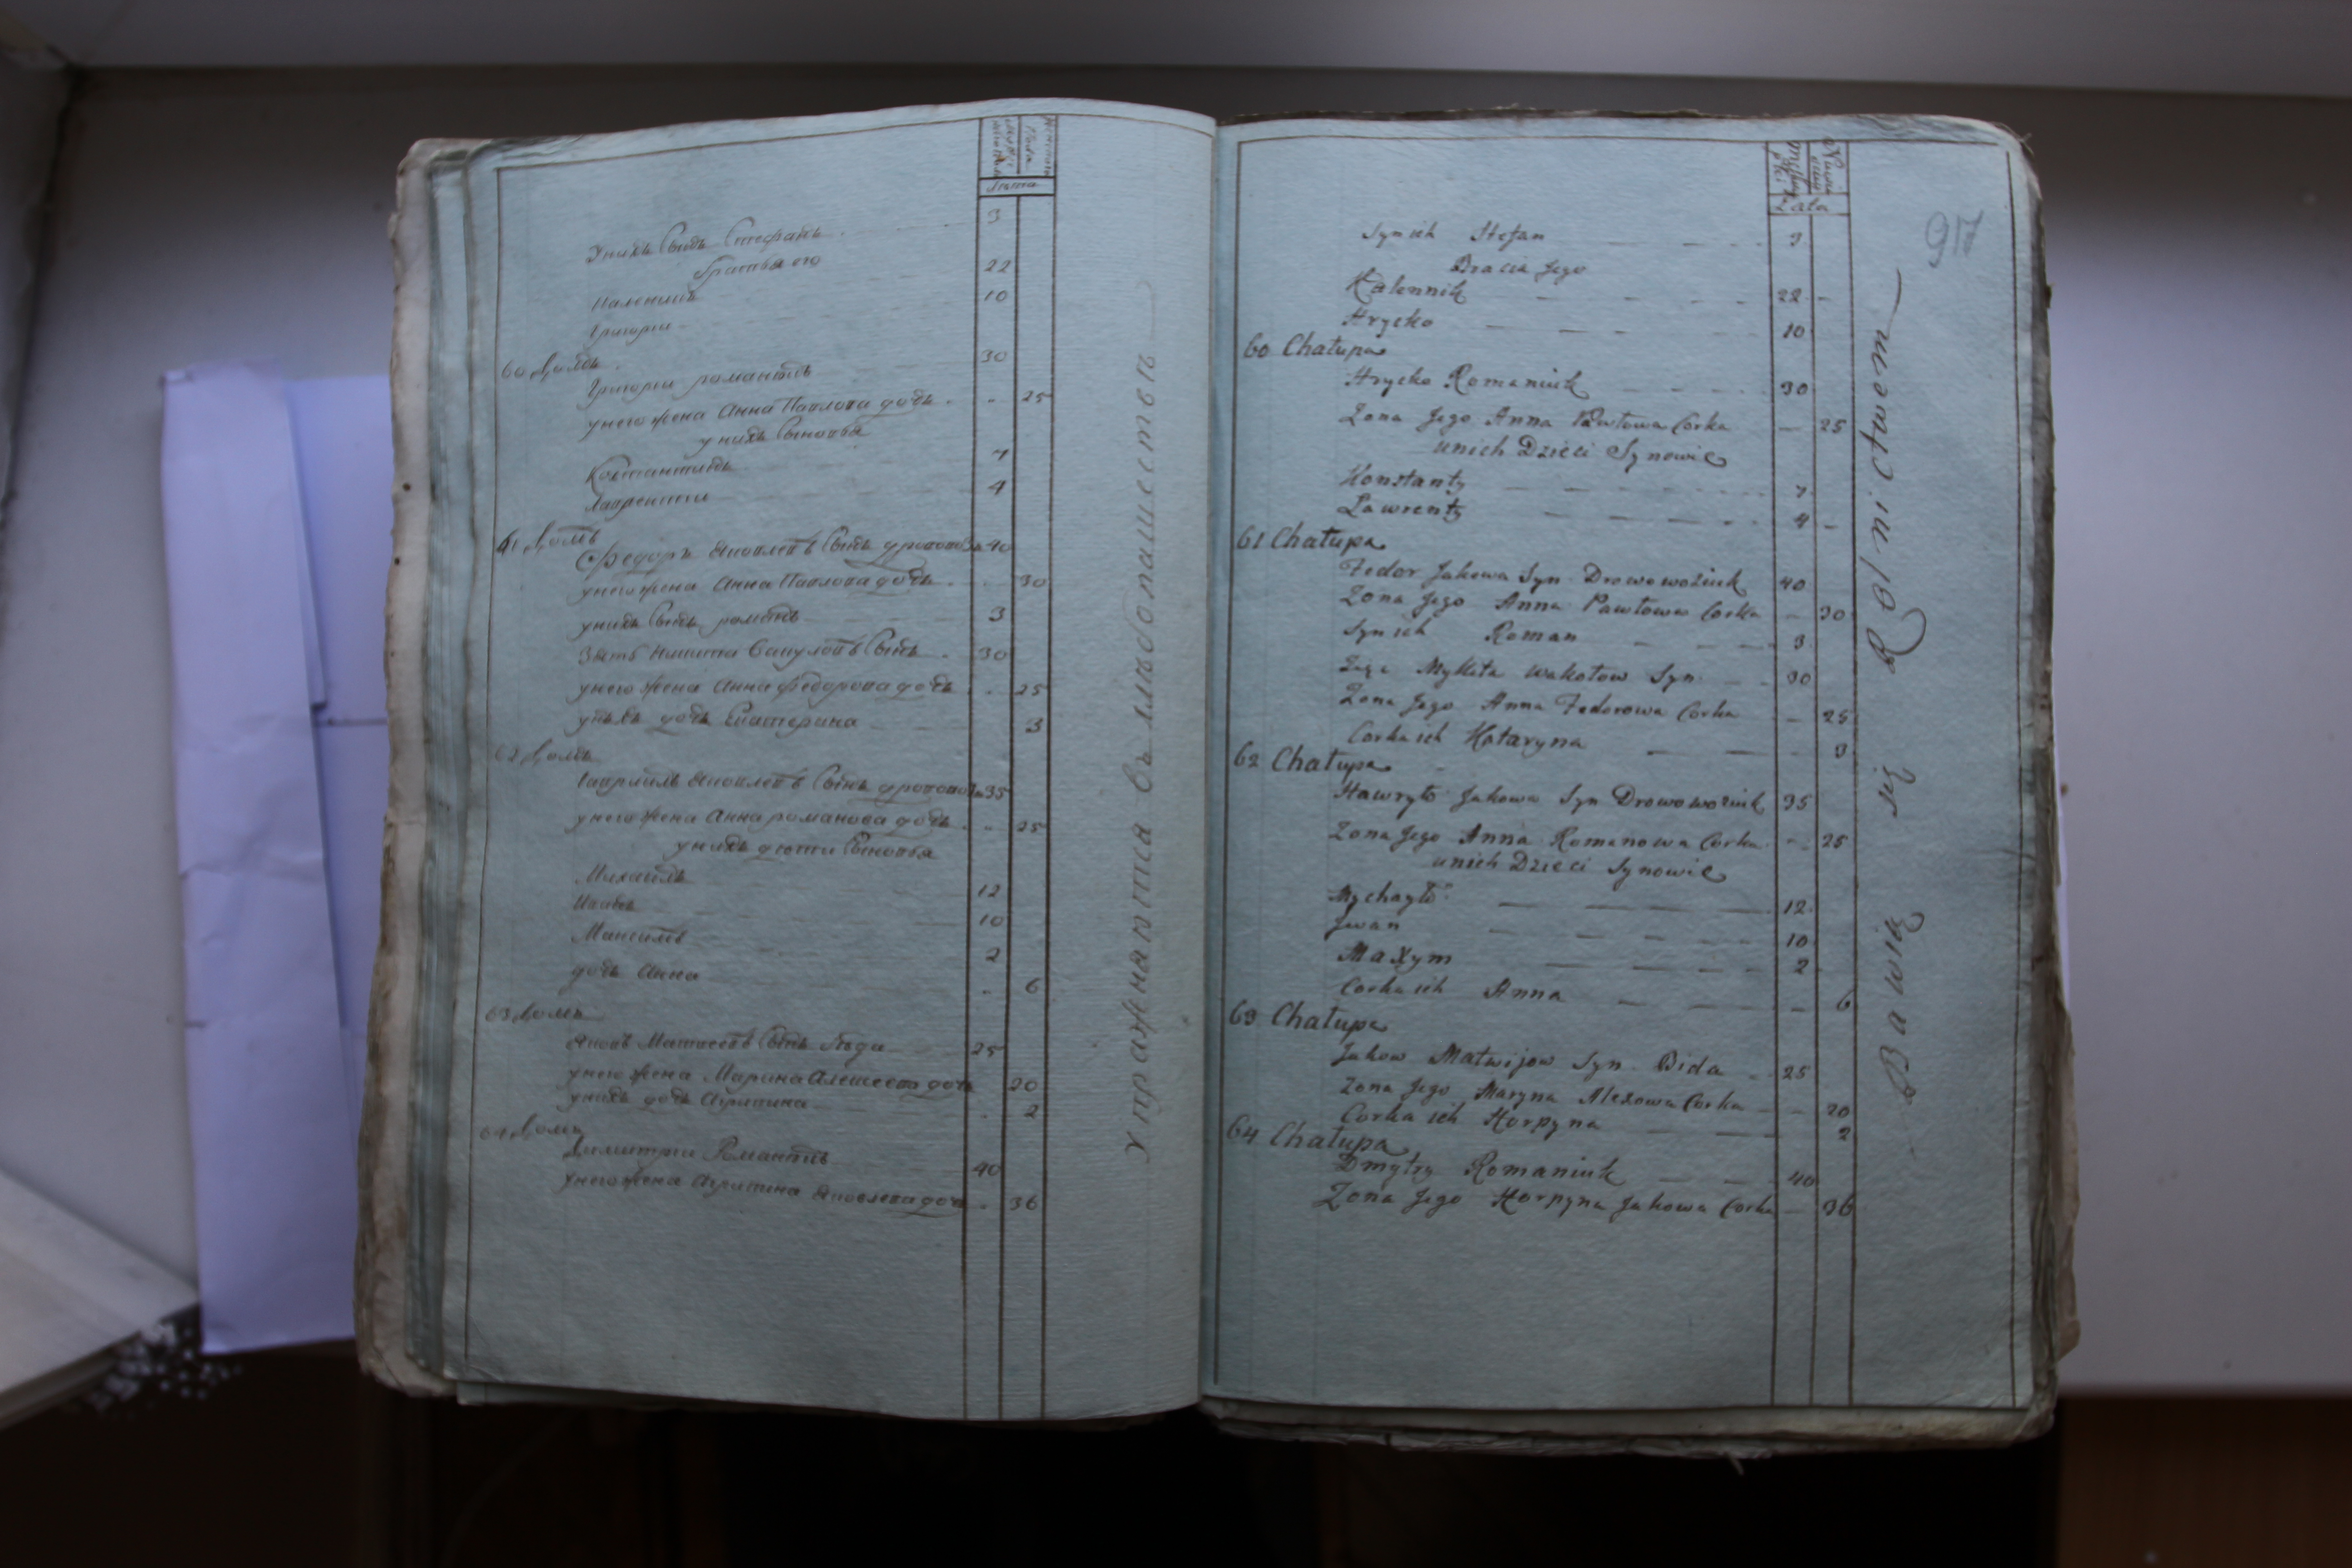 мужеска
Пола
женска
Лѣта
У нихъ Сынъ Стефанъ 3
братья его
Каленикъ 22
Григори 10
60 домъ
Григори романюкъ 30
у него жена Анна Павлова дочь 25
у нихъ Сыновья
Константинъ 7
Лаврентии 4
61 домъ
Федоръ Яковлевъ Сынъ дрововозъ 40
у него жена Анна Павлова дочь 30
у нихъ Сынъ романъ 3
Зять Никита Вакуловъ Сынъ 30
у него жена Анна федорова дочь 25
у нихъ дочь Екатерина 3
62 домъ
Гаврилъ Яковлевъ Сынъ дрововозъ 35
у него жена Анна романова дочь 25
у нихъ дѣти Сыновья
Михаилъ 12
Иванъ 10
Максимъ 2
дочь Анна 6
63 домъ
Яковъ Матвеевъ Сынъ бѣда 25
у него жена Марина Алексеева дочь 20
у нихъ дочь Агрипина 2
64 домъ
Димитри Романюкъ 40
у него жена Агрипина Яковлева дочь 36
Упражняются въ хлѣбопашествѣ
Lata
917
Syn ich Stefan 3
Bracia Jego
Kalennik 22
Hrycko 10
60 Chałupa
Hrycko Romaniuk 30
Zona Jego Anna Pawłowa Corka 25
u nich Dzieci Synowie
Konstanty 7
Lawrenty 4
61 Chałupa
Fedor Jakowa Syn Drowowoziuk 40
Zona Jego Anna Pawłowa Corka 30
Syn ich Roman 3
Zięć Mykita Wakołow Syn 30
Zona Jego Anna Fedorowa Corka 25
Corka ich Kataryna 3
62 Chałupa
Hawryło Jakowa Syn Drowowoziuk 35
Zona Jego Anna Romanowa Corka 25
u nich Dzieci Synowie
Mychayło 12
Jwan 10
Maxym 2
Corka ich Anna 6
63 Chałupa
Jakow Matwijow Syn Bida 25
Zona Jego Maryna Alexowa Corka 20
Corka ich Horpyna 2
64 Chałupa
Dmytry Romaniuk 40
Zona Jego Horpyna Jakowa Corka 36
Bawią się Rolnictwem